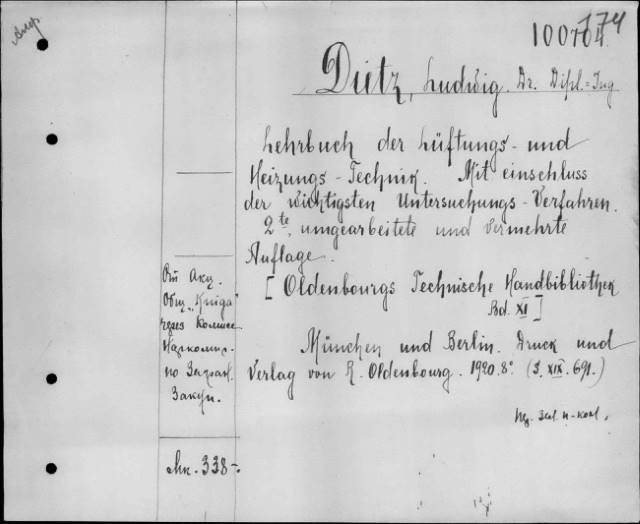 174
Dietz, Ludwig. Dr. Dipl.=Ing
Lehrbuch der Lüftungs- und
Heizungs-Technik. Mit einschluss
der wichtigsten Untersuchungs-Verfahren.
2te, umgearbeitete und vermehrte
Auflage.
[Oldenbourgs Technische Handbibliothek
Bd. XI]
München und Berlin. Druck und
Verlag von R. Oldenbourg. 1920. 8°. (S. XIX. 691.)
От Акц.
Общ. "Kniga"
через Комисс.
Наркомпр.
по Заграп.
Закуп.
Мк. 338-